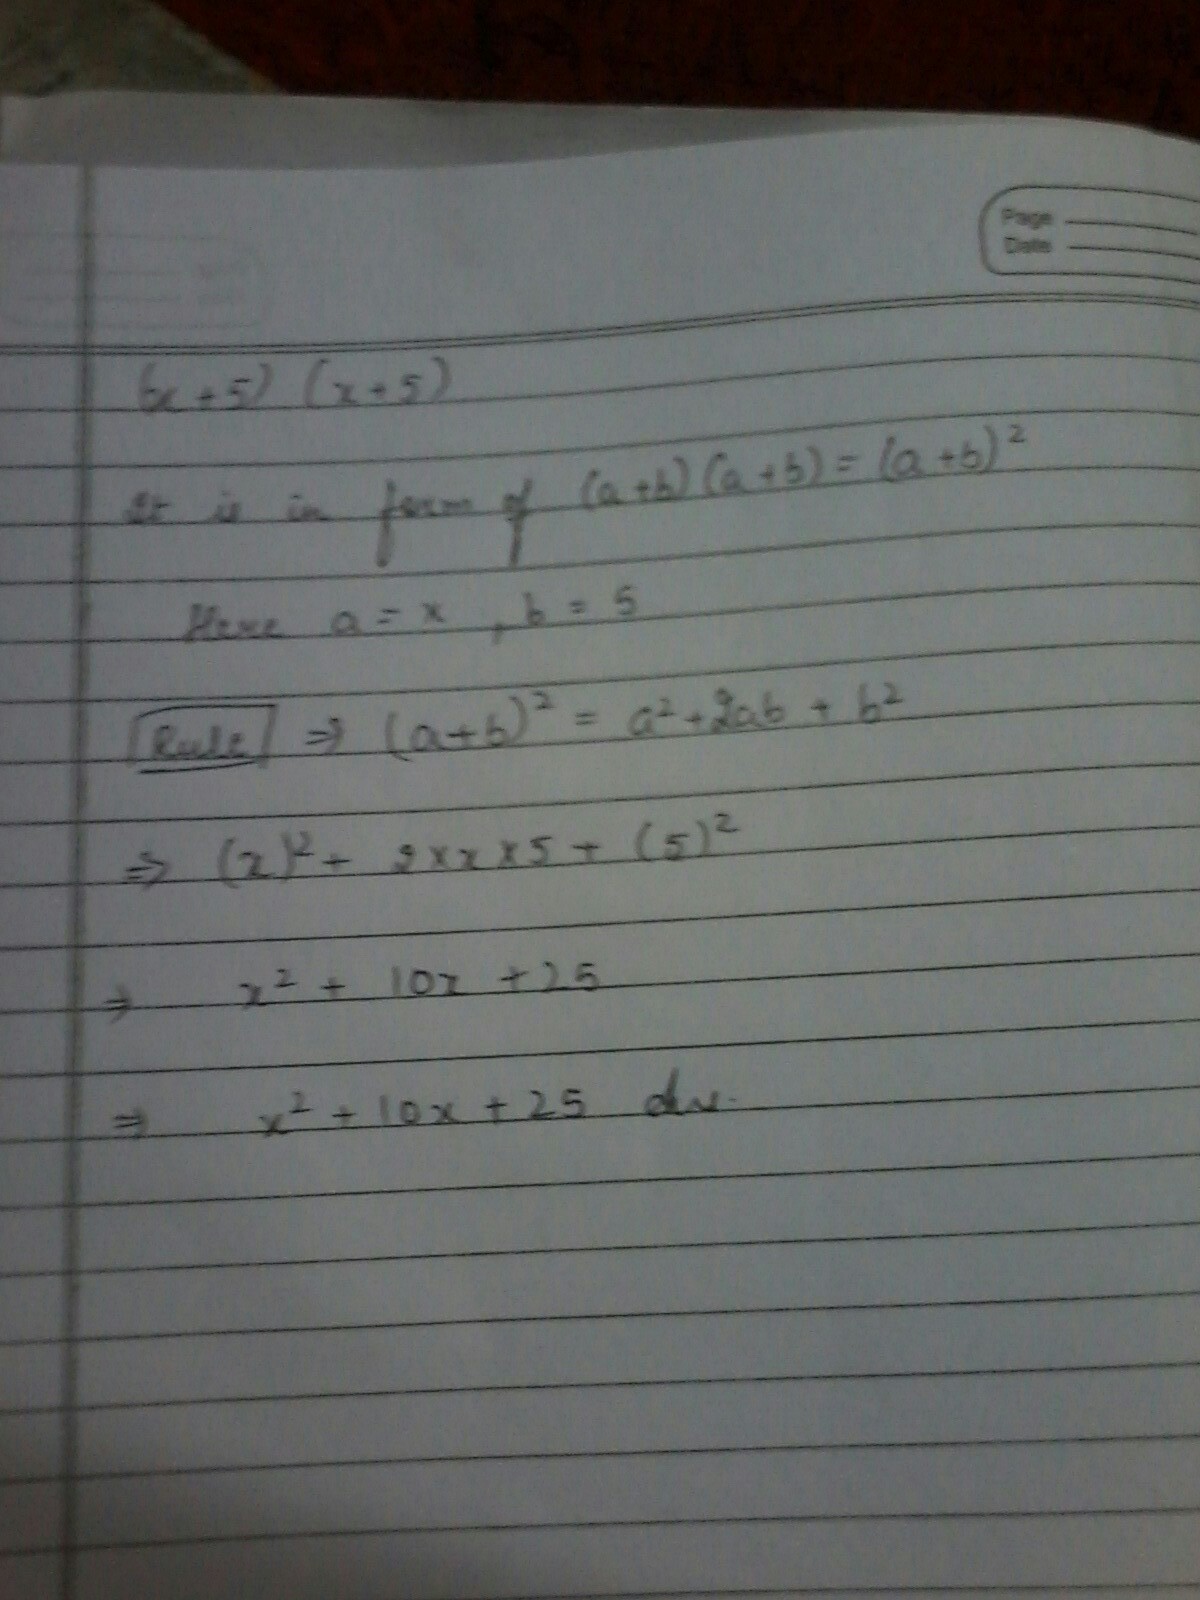 Page
Date
(x+5) (x+5)
It is in form of (a+b)(a+b) = (a+b)²
Here a = x , b = 5
Rule ⇒ (a+b)² = a²+2ab + b²
⇒ (x)² + 2×x×5 + (5)²
⇒ x² + 10x + 25
⇒ x² + 10x + 25